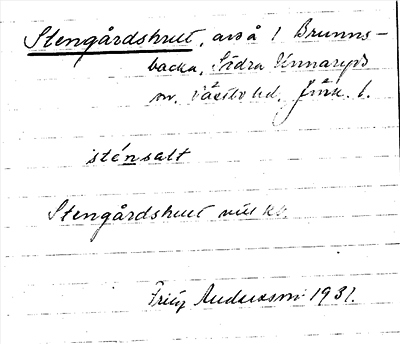 Stengårdshult, avså 1 Brunns-
backa, Södra Unnaryds
sn. Västbo hd. Jönk. l.
sténsalt
Stengårdshult
Fritz Andersson 1931.